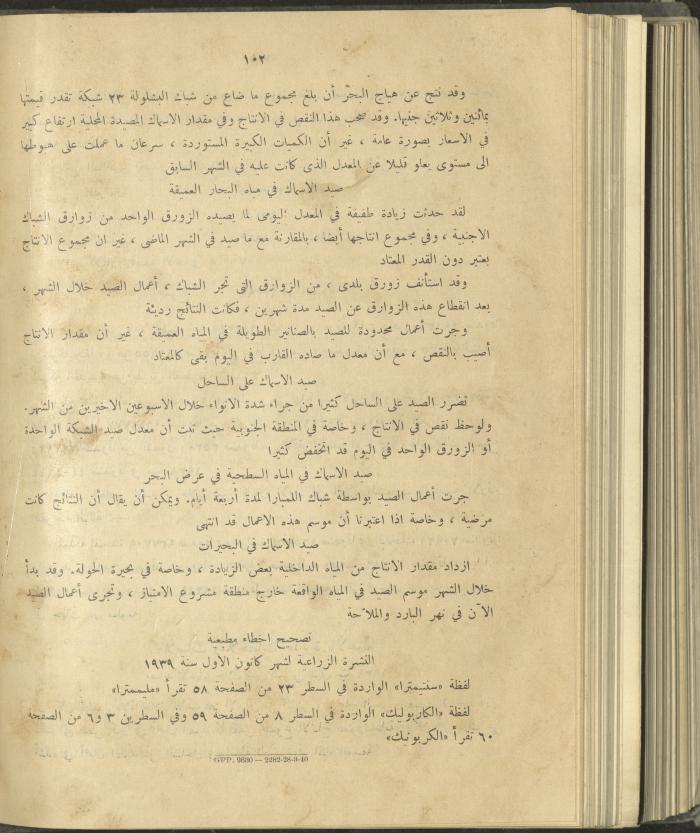 ١٠٢
وقد نتج عن هياج البحر أن بلغ مجموع ما ضاع من شباك المشلولة ٢٣ شبكة تقدر قيمتها
بمائتين وثلاثين جنيها. وقد صحب هذا النقص في الانتاج وفي مقدار الاسماك المصيدة المحلية ارتفاع كبير
في الاسعار بصورة عامة ، غير أن الكميات الكبيرة المستوردة ، سرعان ما عملت على هبوطها
الى مستوى يعلو قليلا عن المعدل الذى كانت عليه في الشهر السابق
صيد الاسماك في مياه البحار العميقة
لقد حدثت زيادة طفيفة في المعدل اليومى لما يصيده الزورق الواحد من زوارق الشباك
الاجنبية ، وفي مجموع انتاجها أيضا ، بالمقارنة مع ما صيد في الشهر الماضى ، غير ان مجموع الانتاج
يعتبر دون القدر المعتاد
وقد استأنف زورق بلدى ، من الزوارق التى تجر الشباك ، أعمال الصيد خلال الشهر ،
بعد انقطاع هذه الزوارق عن الصيد مدة شهرين ، فكانت النتائج رديئة
وجرت أعمال محدودة للصيد بالصنانير الطويلة في المياه العميقة ، غير أن مقدار الانتاج
أصيب بالنقص ، مع أن معدل ما صاده القارب في اليوم بقى كالمعتاد
صيد الاسماك على الساحل
تضرر الصيد على الساحل كثيرا من جراء شدة الانواء خلال الاسبوعين الاخيرين من الشهر.
ولوحظ نقص في الانتاج ، وخاصة في المنطقة الجنوبية حيث ثبت أن معدل صيد الشبكة الواحدة
أو الزورق الواحد في اليوم قد انخفض كثيرا
صيد الاسماك في المياه السطحية في عرض البحر
جرت أعمال الصيد بواسطة شباك اللمبارا لمدة أربعة أيام. ويمكن أن يقال أن النتائج كانت
مرضية ، وخاصة اذا اعتبرنا أن موسم هذه الاعمال قد انتهى
صيد الاسماك في البحيرات
ازداد مقدار الانتاج من المياه الداخلية بعض الزيادة ، وخاصة في بحيرة الحولة. وقد بدأ
خلال الشهر موسم الصيد في المياه الواقعة خارج منطقة مشروع الامتياز ، وتجرى أعمال الصيد
الآن في نهر البارد والملاحة
تصحيح اخطاء مطبعية
النشرة الزراعية لشهر كانون الاول سنة ١٩٣٩
لفظة «سنتيمترا» الواردة في السطر ٢٣ من الصفحة ٥٨ تقرأ «مليمترا»
لفظة «الكاربوليك» الواردة في السطر ٨ من الصفحة ٥٩ وفي السطرين ٣ و٦ من الصفحة
٦٠ تقرأ «الكربونيك»
GPP. 9830 — 2282-28-3-40